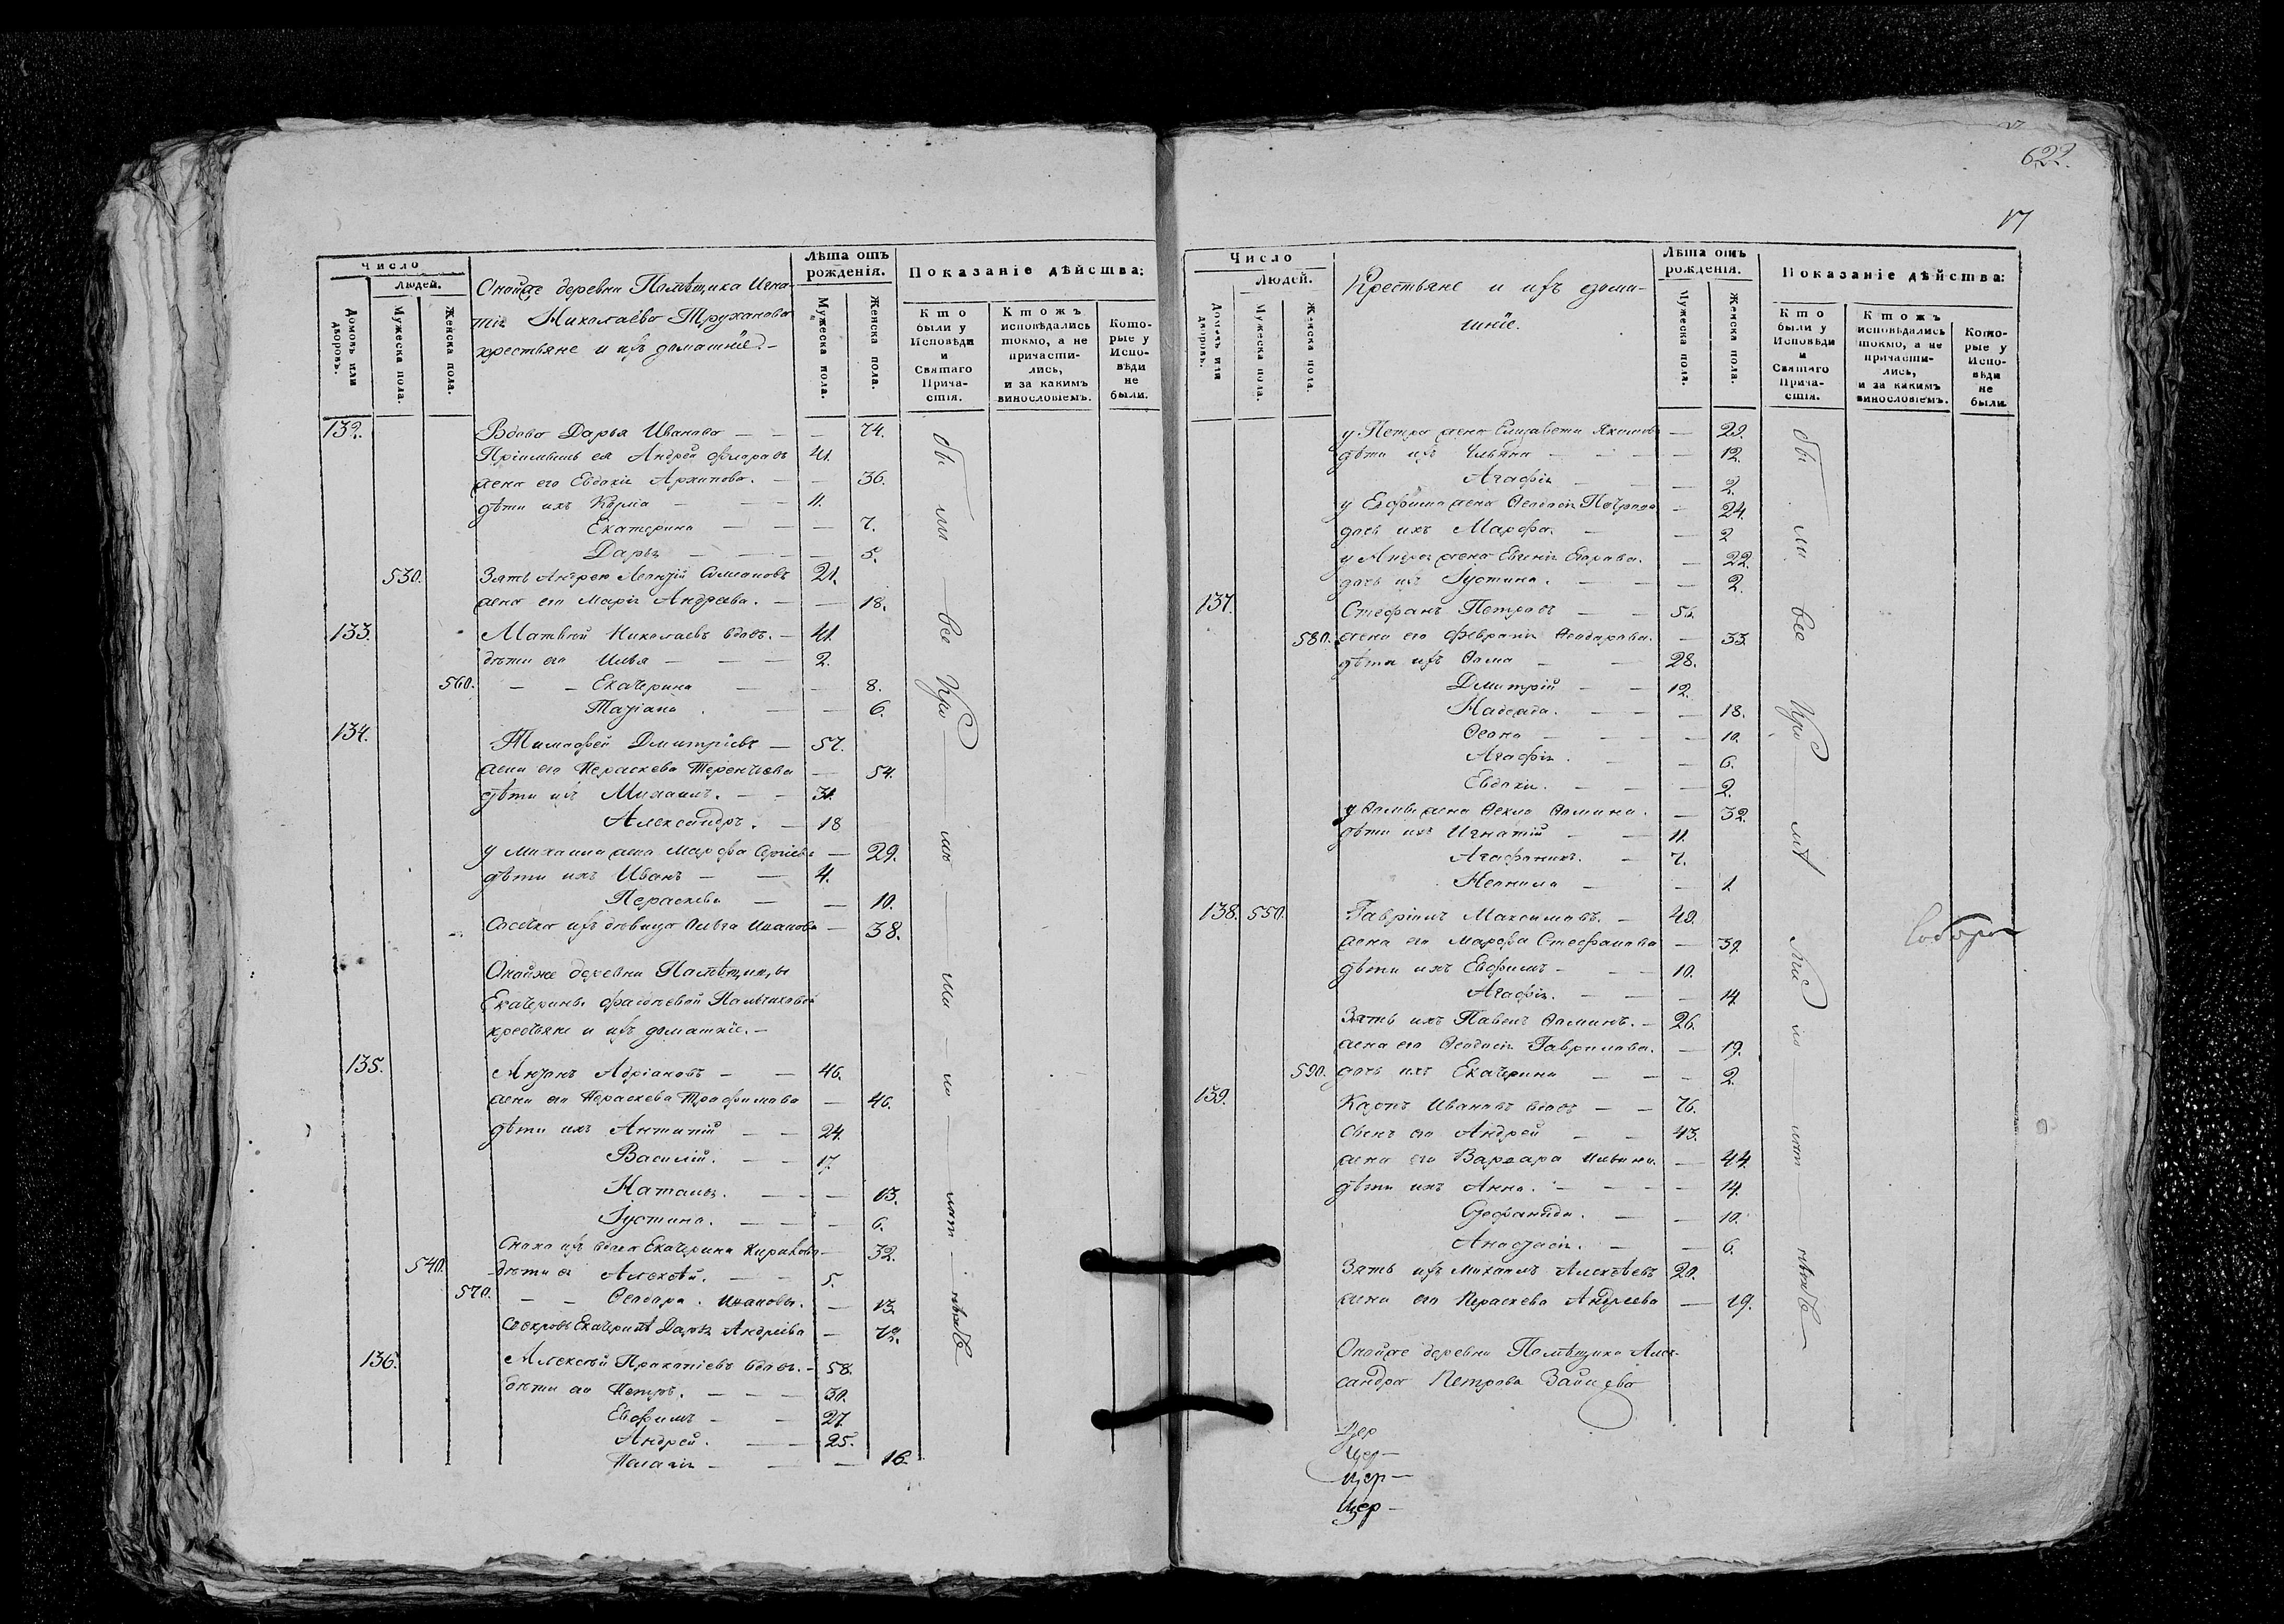 Число
Людей.
Домовъ или дворовъ.
Мужеска пола.
Женска пола.
Онойже деревни Помѣщика Игна-
тія Николаева Труханова
крестьяне и ихъ домашніе.
Лѣта отъ рожденія.
Мужеска пола.
Женска пола.
Показаніе дѣйства:
Кто были у Исповѣди и Святаго Причастія.
Ктожъ исповѣдались токмо, а не причастились, и за какимъ винословіемъ.
Которые у Исповѣди не были.
132. Вдова Дарья Иванова — — — 74.
Пріимышъ ея Андрей Флоровъ 41.
жена его Евдокія Архипова. — — 36.
дѣти ихъ Козма — — 11.
Екатерина — — — 7.
Дарья — — — 5.
530. Зять Андрею Леонтій Симеоновъ 21.
жена его Марія Андреева. — — 18.
133. Матвѣй Николаевъ вдовъ. — 41.
дѣти его Илья — — — 2.
560. — — Екатерина — — 8.
Татіана — — 6.
134. Тимофей Дмитріевъ — 57.
жена его Параскева Терентьева — 54.
дѣти ихъ Михаилъ. — — 31.
Александръ. — 18
у Михаила жена Марфа Сергіева — 29.
дѣти ихъ Иванъ — — 4.
Параскева — — 10.
Сосѣдка ихъ дѣвица Ольга Иванова — 38.
Онойже деревни Помѣщицы
Екатерины Пальчиковой
крестьяне и ихъ домашніе. —
135. Антонъ Адріановъ — — 46.
жена его Параскева Трофимова — 46.
дѣти ихъ Антипій — — 24.
Василій. — — 17.
Наталья. — — — 13.
Іустина. — — — 6.
Сноха ихъ вдова Екатерина — 32.
540. дѣти ея Алексѣй. — — 5.
570. — — Ѳеодора. Иванова. — 13.
Свекровь Екатеринѣ Дарья Андреева — 72.
136. Алексѣй Прокопіевъ вдовъ. — 58.
дѣти его Петръ. — — — 30.
Евфимъ — — 27.
Андрей. — — 25.
Пелагія — — — 16.
были все при по нятнѣ
622.
17
Число
Людей.
Домовъ или дворовъ.
Мужеска пола.
Женска пола.
Крестьяне и ихъ домаш-
шніе.
Лѣта отъ рожденія.
Мужеска пола.
Женска пола.
Показаніе дѣйства:
Кто были у Исповѣди и Святаго Причастія.
Ктожъ исповѣдались токмо, а не причастились, и за какимъ винословіемъ.
Которые у Исповѣди не были.
у Петра жена Елизавета Якимова — 29.
дѣти ихъ Ульяна — — — 12.
Агафія — — 2.
у Евфима жена Ѳеодосія — 24.
дочь ихъ Марфа. — — 2
у Андрея жена Евгенія Егорова. — 22.
дочь ихъ Іустина. — — — 2.
137. Стефанъ Петровъ — — 51.
580. жена его Февронія Ѳеодорова. — 33.
дѣти ихъ Ѳома — — 28.
Дмитрій — — 12.
Надежда. — — — 18.
— — — 10.
Агафія. — — 6.
Евдокія. — — — 2.
у Ѳомы жена Ѳекла Ѳомина. — 32.
дѣти ихъ Игнатій — — 11.
Агафоникъ. — 7.
Неонила — — 1
138. 550. Гавріилъ Максимовъ. — 40.
жена его Марфа Стефанова — 39.
дѣти ихъ Евфимъ — — — 10.
Агафія. — — — 14.
Зять ихъ Павелъ Ѳоминъ. — 26.
жена его Ѳеодосія Гаврилова. — 19.
590. дочь ихъ Екатерина — — — 2.
139. Карпъ Ивановъ вдовъ — — 76.
сынъ его Андрей — — 43.
жена его Варвара Ильина. — 44.
дѣти ихъ Анна. — — — — 14.
— — 10.
Анастасія. — — 6.
Зять ихъ Михаилъ Алексѣевъ 20.
жена его Параскева Андреева — 19.
Онойже деревни Помѣщика Алек-
сандра Петрова Зайцева
Цер
Цер —
Цер —
Цер —